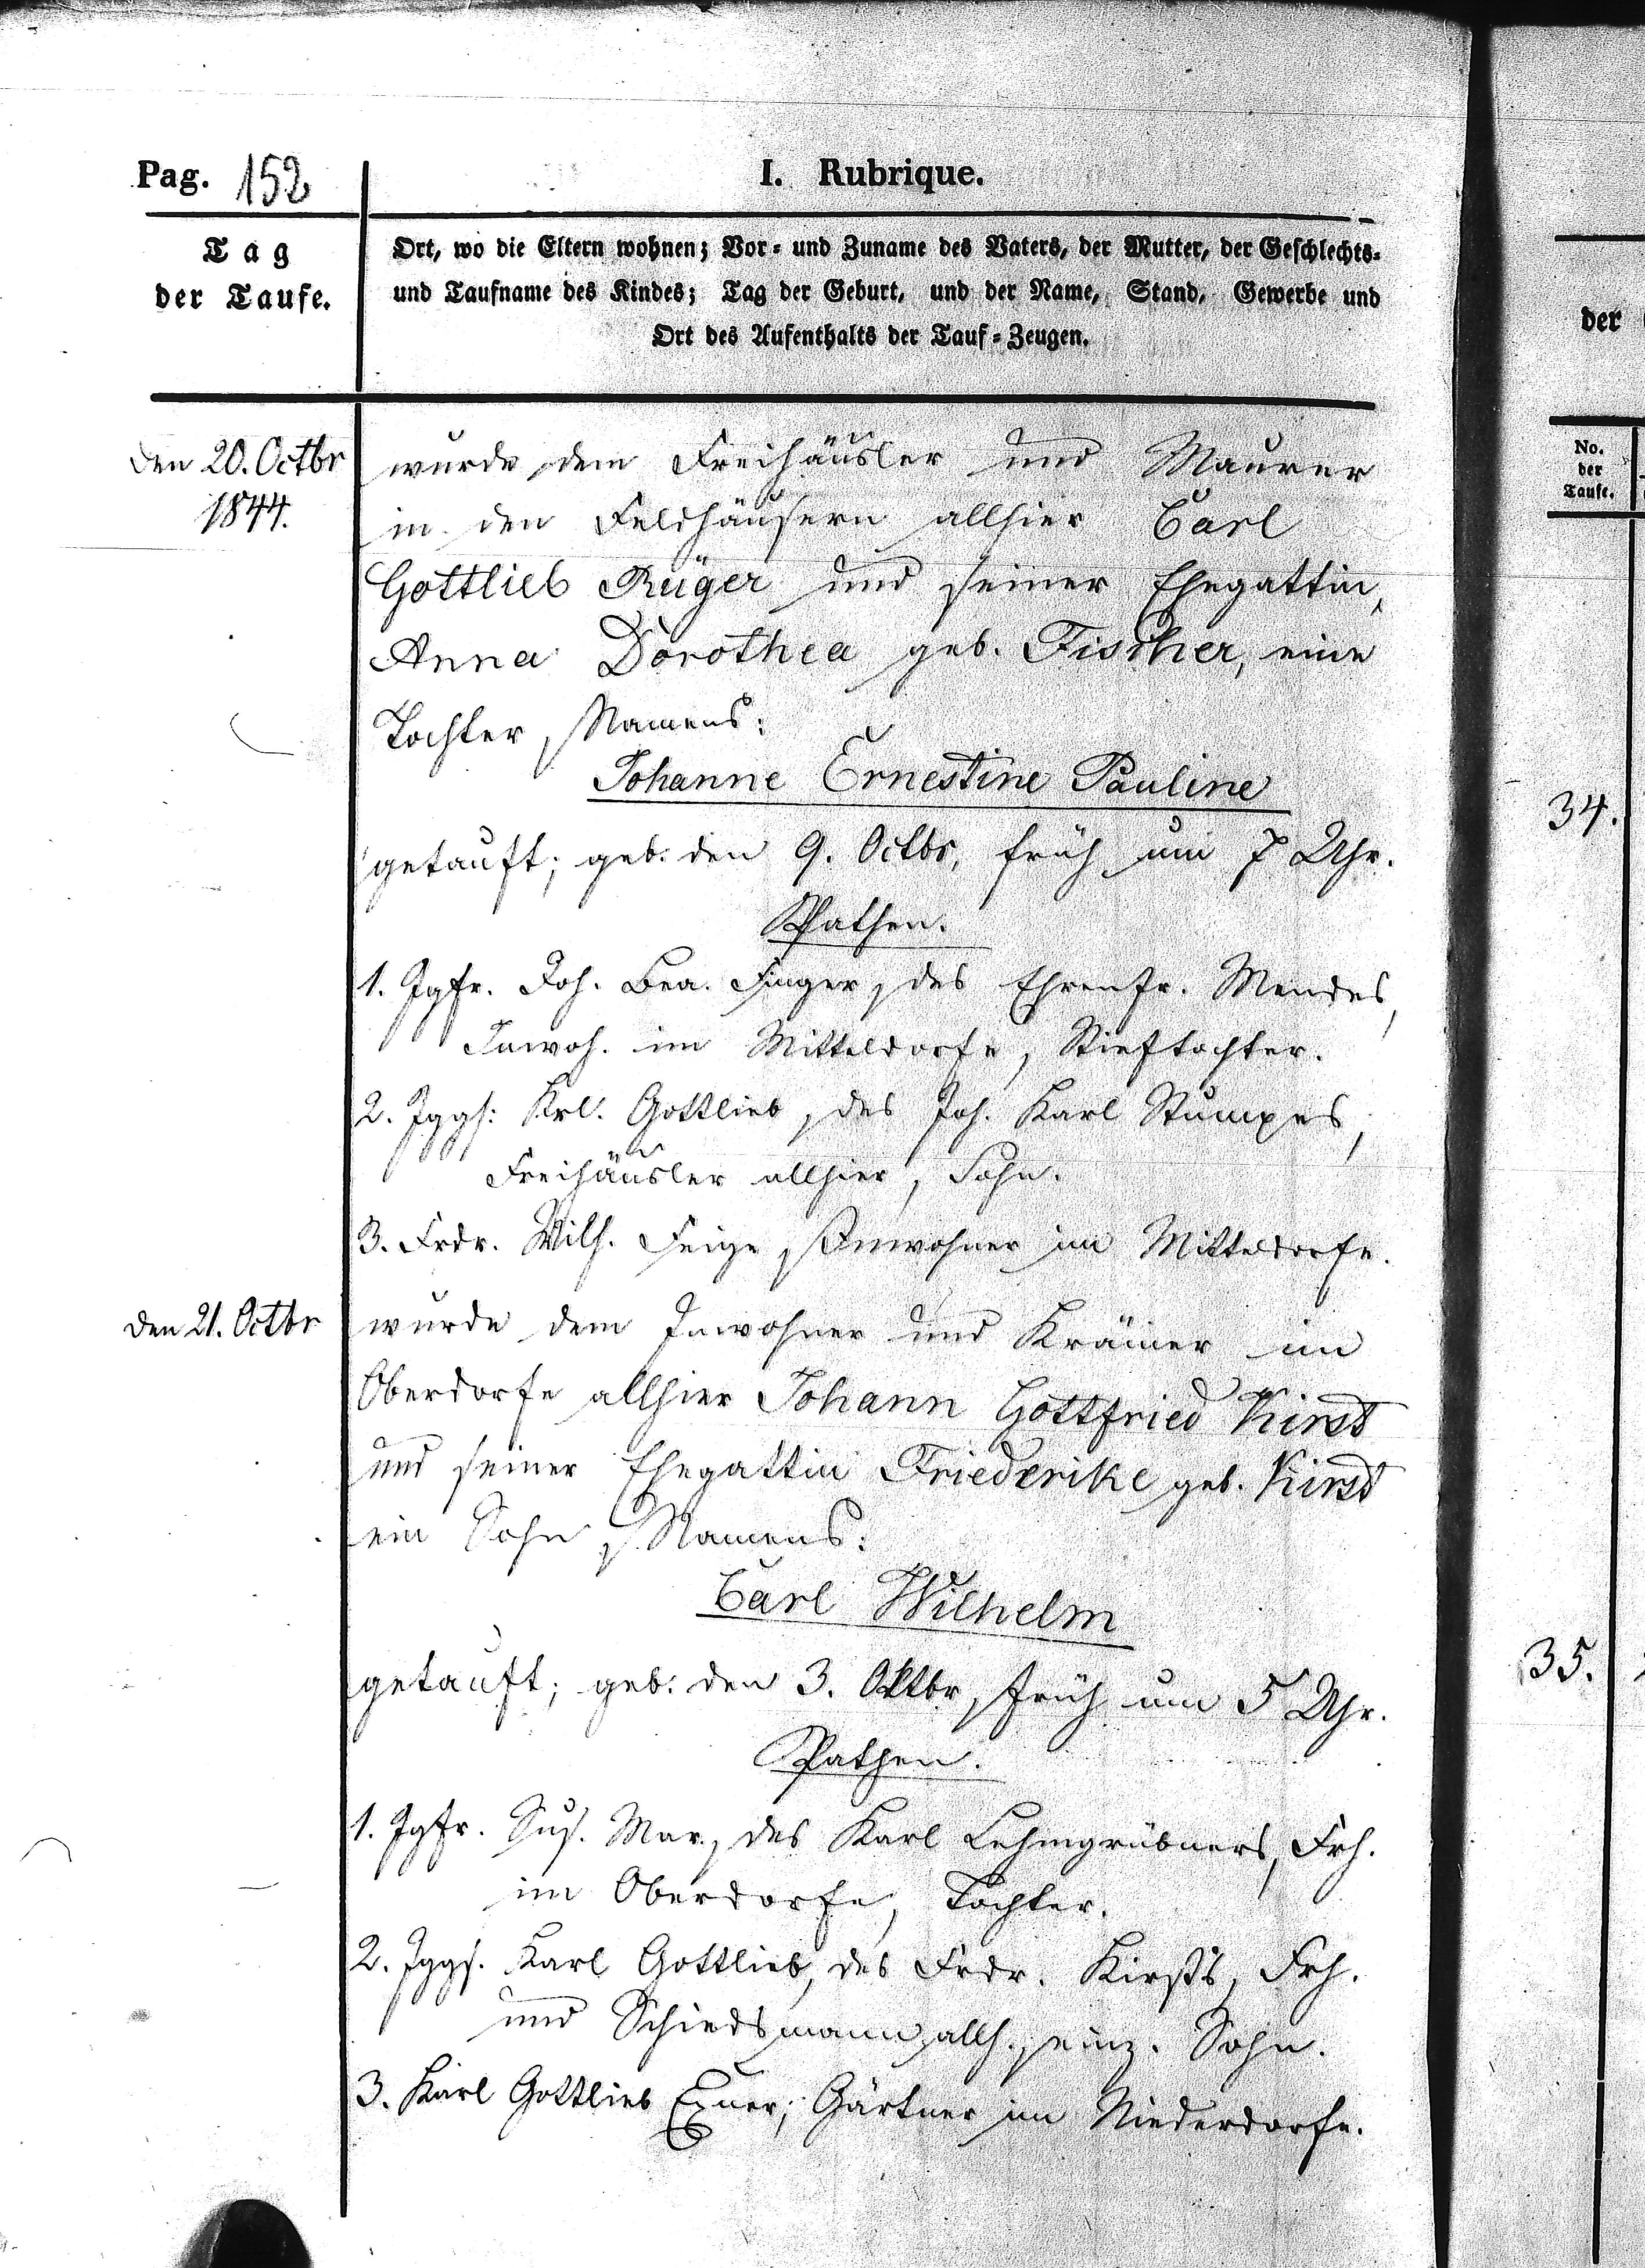 Pag. 152
I. Rubrique.
Tag
der Taufe.
Ort, wo die Eltern wohnen; Vor- und Zuname des Vaters, der Mutter, der Geschlechts-
und Taufname des Kindes; Tag der Geburt, und der Name, Stand, Gewerbe und
Ort des Aufenthalts der Tauf-Zeugen.
den 20. Octbr
1844.
wurde dem Freihäusler und Maurer
in den Feldhäusern allhier Carl
Gottlieb Rüger und seiner Ehegattin,
Anna Dorothea geb. Fischer, eine
Tochter, Namens:
Johanne Ernestine Pauline
getauft; geb. den 9. Octbr, früh um 7 Uhr.
Pathen.
1. Jgfr. Joh. Bea. Finger, des Ehrenfr. Mendes,
Inwoh. im Mitteldorfe, Stieftochter.
2. Jggs: Krl. Gottlieb, des Joh. Karl Stumpes,
Freihäusler allhier, Sohn.
3. Frdr. Wilh. Feige, Inwohner im Mitteldorfe.
den 21. Octbr
wurde dem Inwohner und Krämer im
Oberdorfe allhier Johann Gottfried Kirst
und seiner Ehegattin Friederike geb. Kirst
ein Sohn, Namens:
Carl Wilhelm
getauft; geb. den 3. Oktbr, früh um 5 Uhr.
Pathen.
1. Jgfr. Sus. Mar., des Karl Lehmgrübners, Frh.
im Oberdorfe, Tochter.
2. Jggs. Karl Gottlieb, des Frdr. Kirst's, Frh.
und Schiedsmann allh., einz. Sohn.
3. Karl Gottlieb Exner, Gärtner im Niederdorfe.
der
No.
der
Taufe.
34.
35.